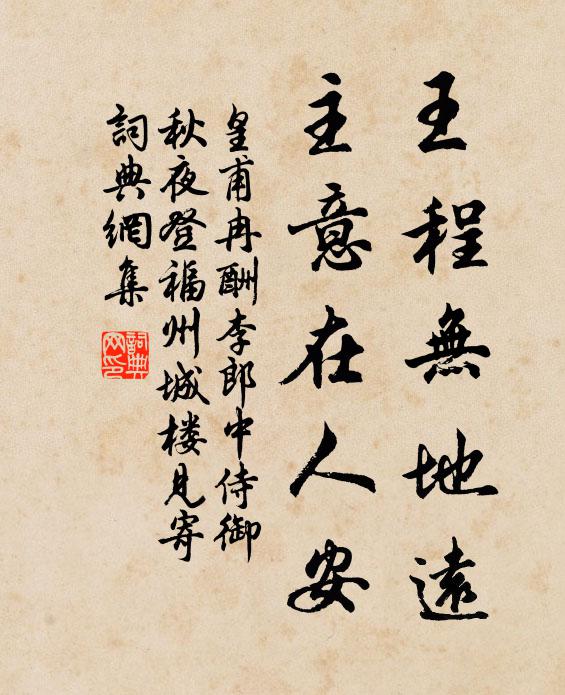 王程無地遠
主意在人安
皇甫冉酬李郎中侍御
秋夜登福州城楼见寄
詞典網集
詞典
网印